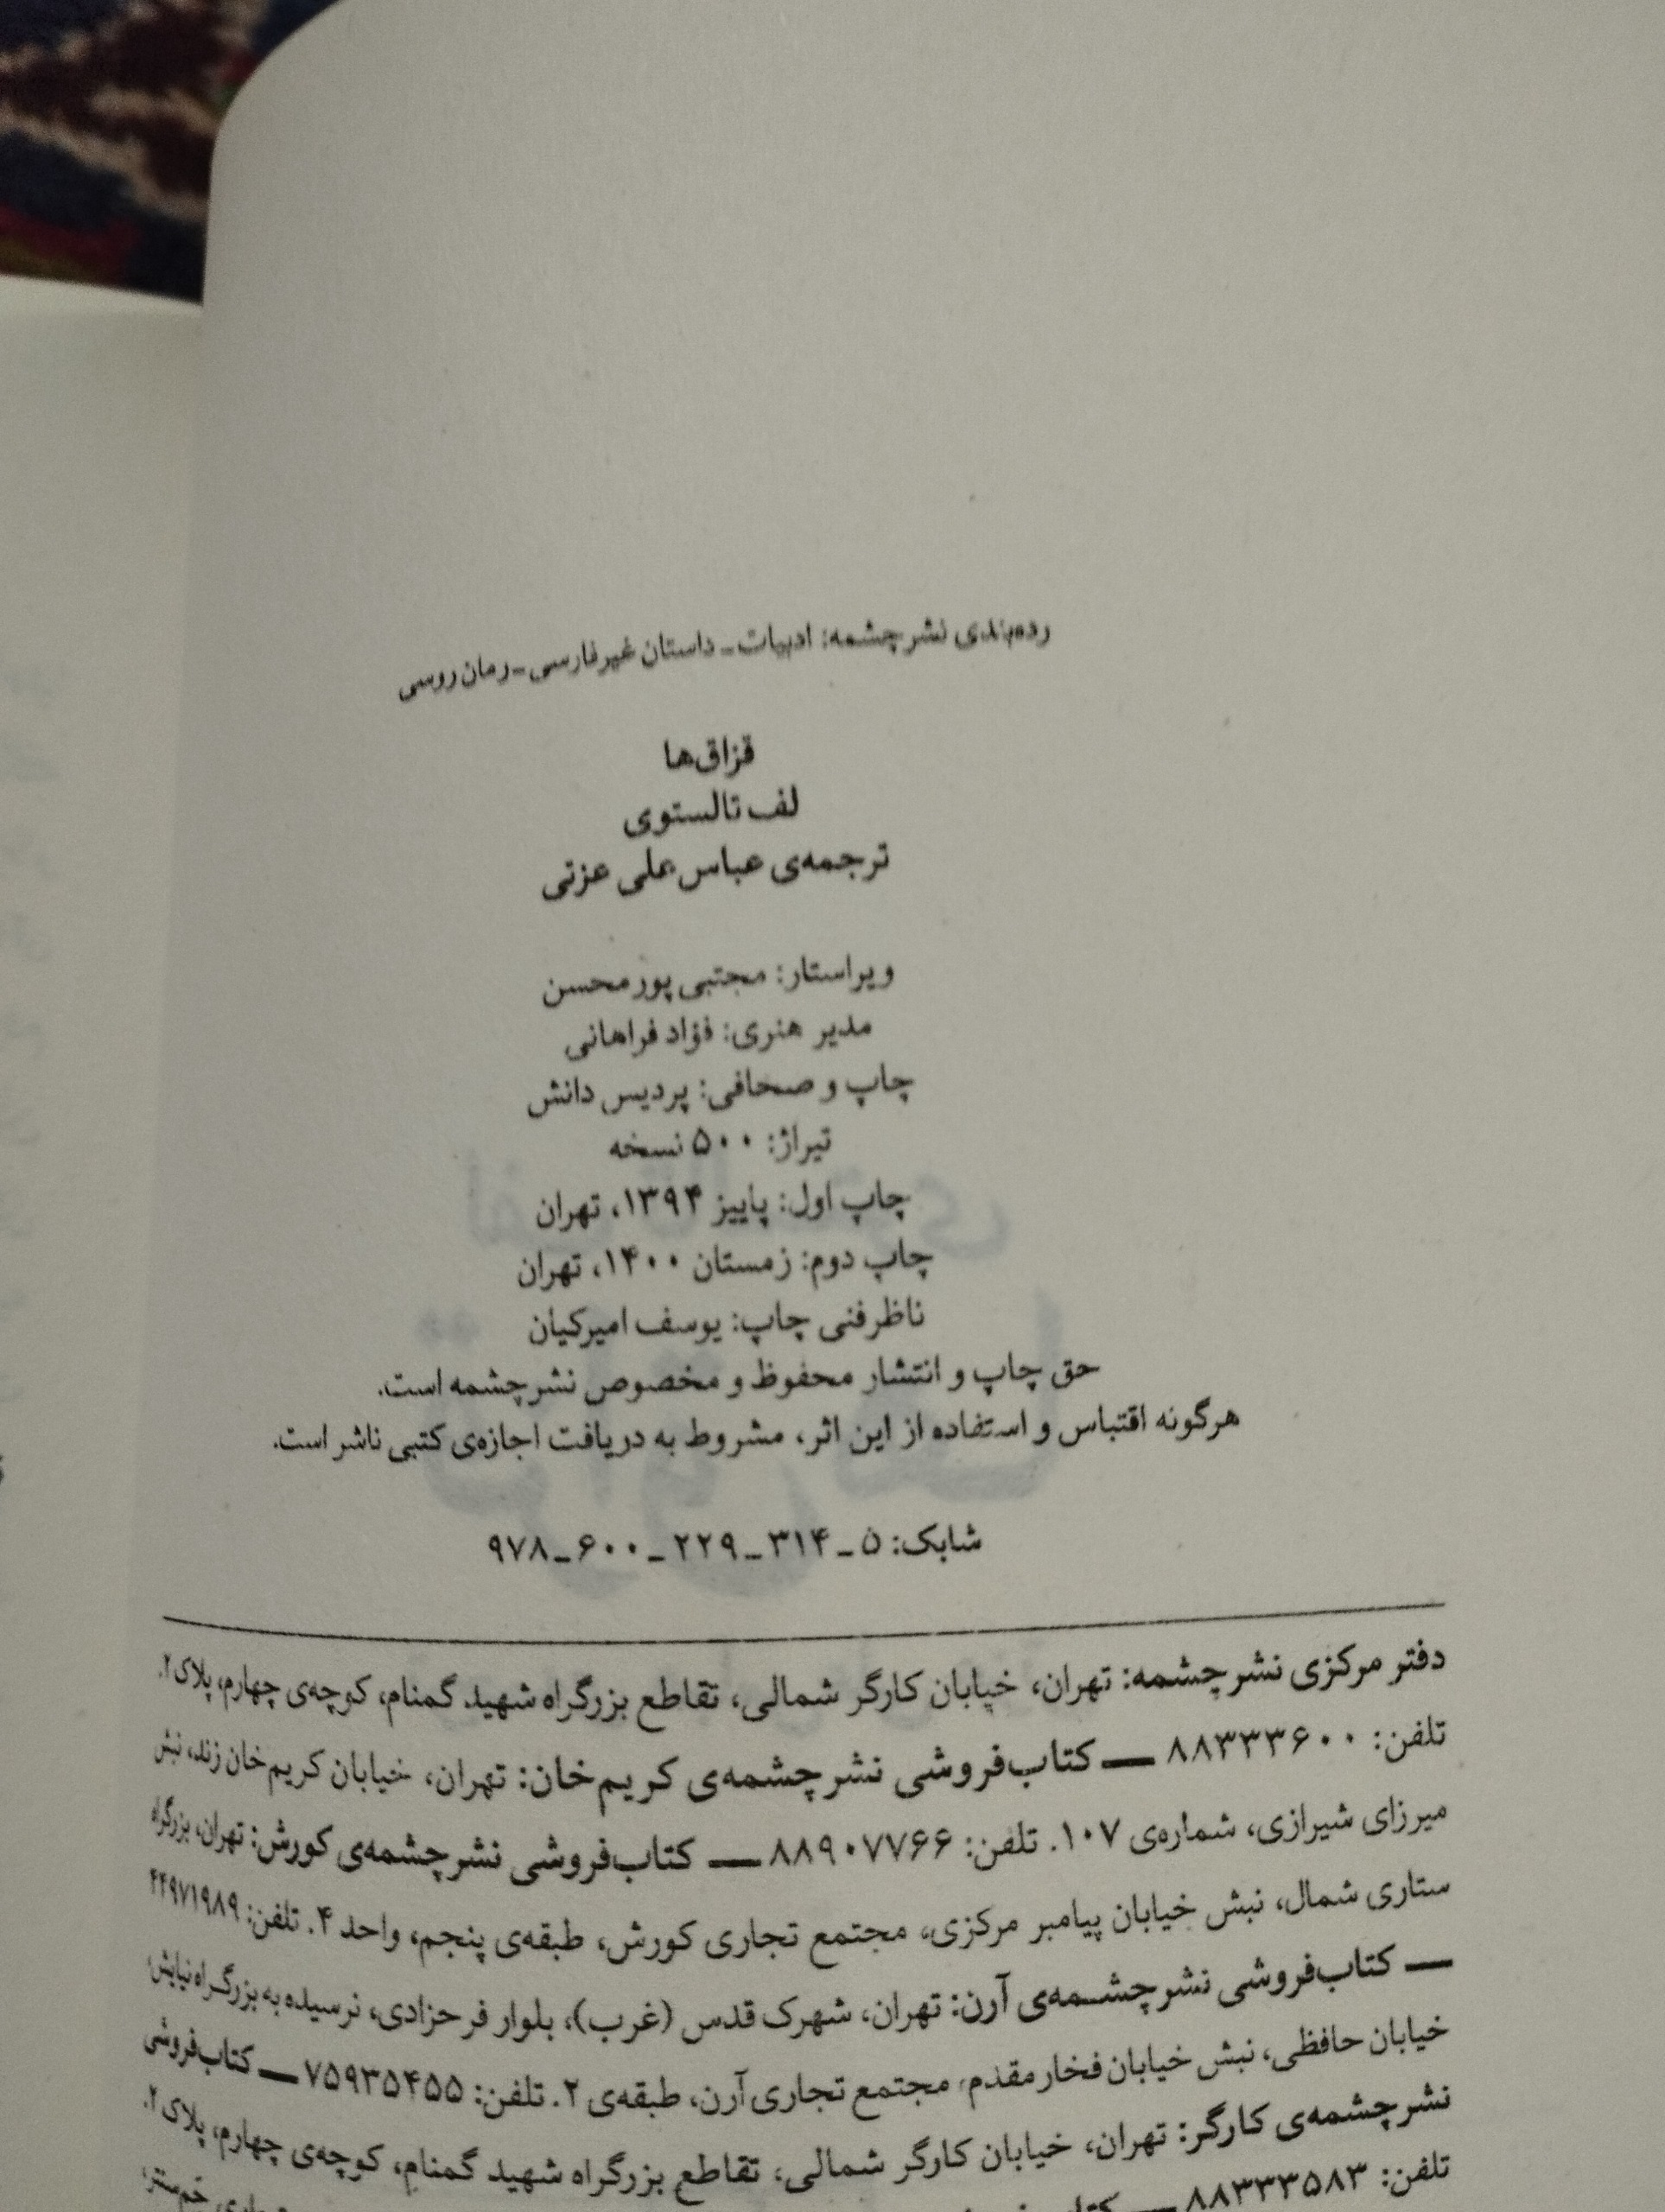 رده‌بندی نشرچشمه: ادبیات ـ داستان غیرفارسی ـ رمان روسی
قزاق‌ها
لف تالستوی
ترجمه‌ی عباس‌علی عزتی
ویراستار: مجتبی پورمحسن
مدیر هنری: فؤاد فراهانی
چاپ و صحافی: پردیس دانش
تیراژ: ۵۰۰ نسخه
چاپ اول: پاییز ۱۳۹۴، تهران
چاپ دوم: زمستان ۱۴۰۰، تهران
ناظرفنی چاپ: یوسف امیرکیان
حق چاپ و انتشار محفوظ و مخصوص نشرچشمه است.
هرگونه اقتباس و استفاده از این اثر، مشروط به دریافت اجازه‌ی کتبی ناشر است.
شابک: ۵ ـ ۳۱۴ ـ ۲۲۹ ـ ۶۰۰ ـ ۹۷۸
دفتر مرکزی نشرچشمه: تهران، خیابان کارگر شمالی، تقاطع بزرگراه شهید گمنام، کوچه‌ی چهارم، پلاک ۲.
تلفن: ۸۸۳۳۳۶۰۰ — کتاب‌فروشی نشرچشمه‌ی کریم‌خان: تهران، خیابان کریم‌خان زند، نبش
میرزای شیرازی، شماره‌ی ۱۰۷. تلفن: ۸۸۹۰۷۷۶۶ — کتاب‌فروشی نشرچشمه‌ی کورش: تهران، بزرگراه
ستاری شمال، نبش خیابان پیامبر مرکزی، مجتمع تجاری کورش، طبقه‌ی پنجم، واحد ۴. تلفن: ۴۴۹۷۱۹۸۹
— کتاب‌فروشی نشرچشمه‌ی آرن: تهران، شهرک قدس (غرب)، بلوار فرحزادی، نرسیده به بزرگراه نیایش،
خیابان حافظی، نبش خیابان فخارمقدم، مجتمع تجاری آرن، طبقه‌ی ۲. تلفن: ۷۵۹۳۵۴۵۵ — کتاب‌فروشی
نشرچشمه‌ی کارگر: تهران، خیابان کارگر شمالی، تقاطع بزرگراه شهید گمنام، کوچه‌ی چهارم، پلاک ۲.
تلفن: ۸۸۳۳۳۵۸۳ —